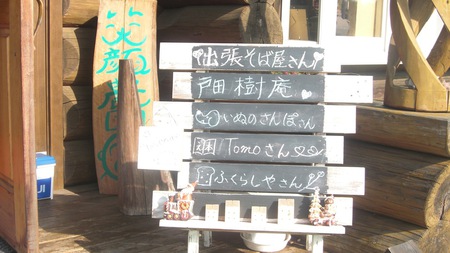 笑顔
出張そば屋さん
戸田樹庵
いぬのさんぽさん
Tomoさん
ふくらしやさん